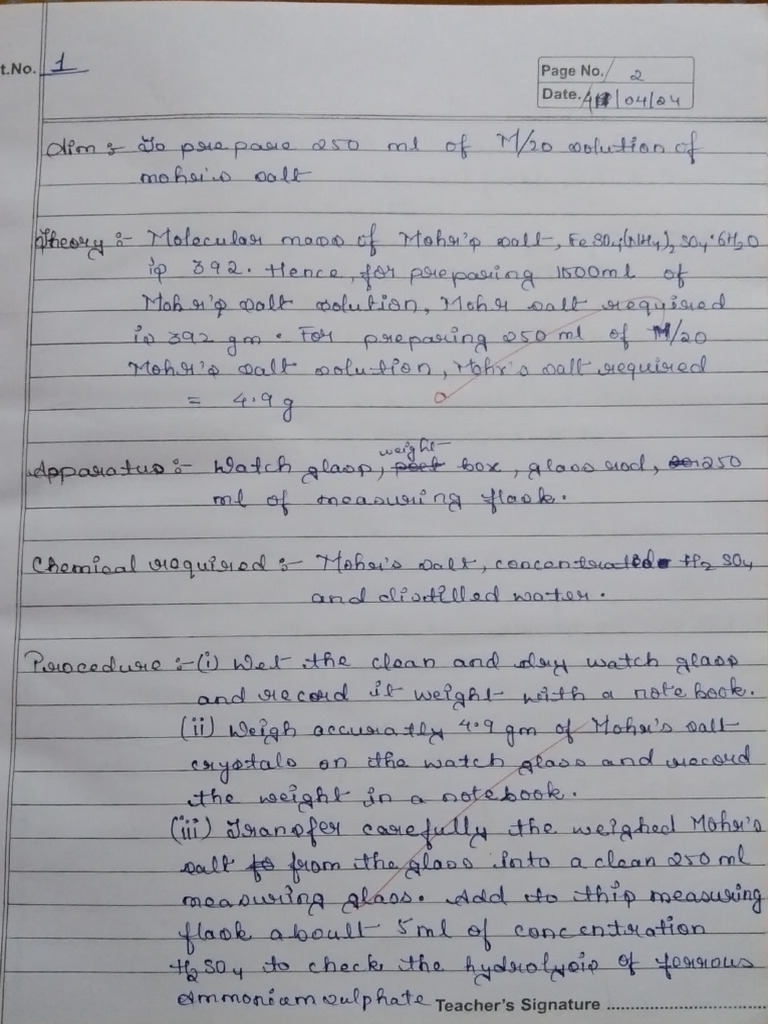 t.No. 1
Page No. 2
Date. /04/04
Aim :- To prepare 250 ml of M/20 solution of
mohr's salt
Theory :- Molecular mass of Mohr's salt, FeSO4(NH4)2SO4·6H2O
is 392. Hence, for preparing 1000ml of
Mohr's salt solution, Mohr salt required
is 392 gm. For preparing 250 ml of M/20
Mohr's salt solution, Mohr's salt required
= 4.9 g
weight
Apparatus :- Watch glass, box, glass rod, 250
ml of measuring flask.
Chemical required :- Mohr's salt, concentrated H2SO4
and distilled water.
Procedure :- (i) Wet the clean and dry watch glass
and record it weight with a note book.
(ii) Weigh accuratly 4.9 gm of Mohr's salt
crystals on the watch glass and record
the weight in a notebook.
(iii) Transfer carefully the weighed Mohr's
salt from the glass into a clean 250 ml
measuring glass. Add to this measuring
flask aboult 5ml of concentration
H2SO4 to check the hydrolysis of ferrous
ammonium sulphate Teacher's Signature